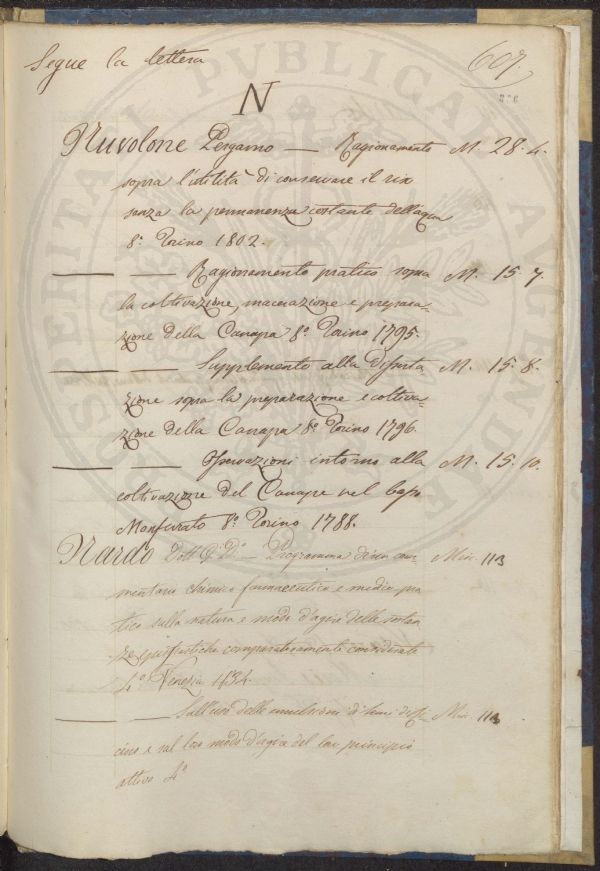 Segue la lettera
607.
N
Nuvolone Pergamo — Ragionamento M. 28. 4.
sopra l'utilità di conservare il riso
senza la permanenza costante dell'acqua
8.° Torino 1802.
— — Ragionamento pratico sopra M. 15. 7.
la coltivazione, macerazione e prepara-
zione della Canapa 8.° Torino 1795.
— — Supplemento alla Disserta M. 15. 8.
zione sopra la preparazione e coltiva-
zione della Canapa 8.° Torino 1796.
— — Osservazioni intorno alla M. 15. 10.
coltivazione del Canape nel basso
Monferrato 8.° Torino 1788.
Nardo Dott. D.° — Programma di un com- Min. 113
mentario chimico farmaceutico e medico pra
tico sulla natura e modo d'agire delle sostan
ze comparativamente considerate
4.° Venezia 1834.
— — Sull'uso delle emulsioni di semi di Min. 113
cino e sul loro modo d'agire del loro principio
attivo 4.°